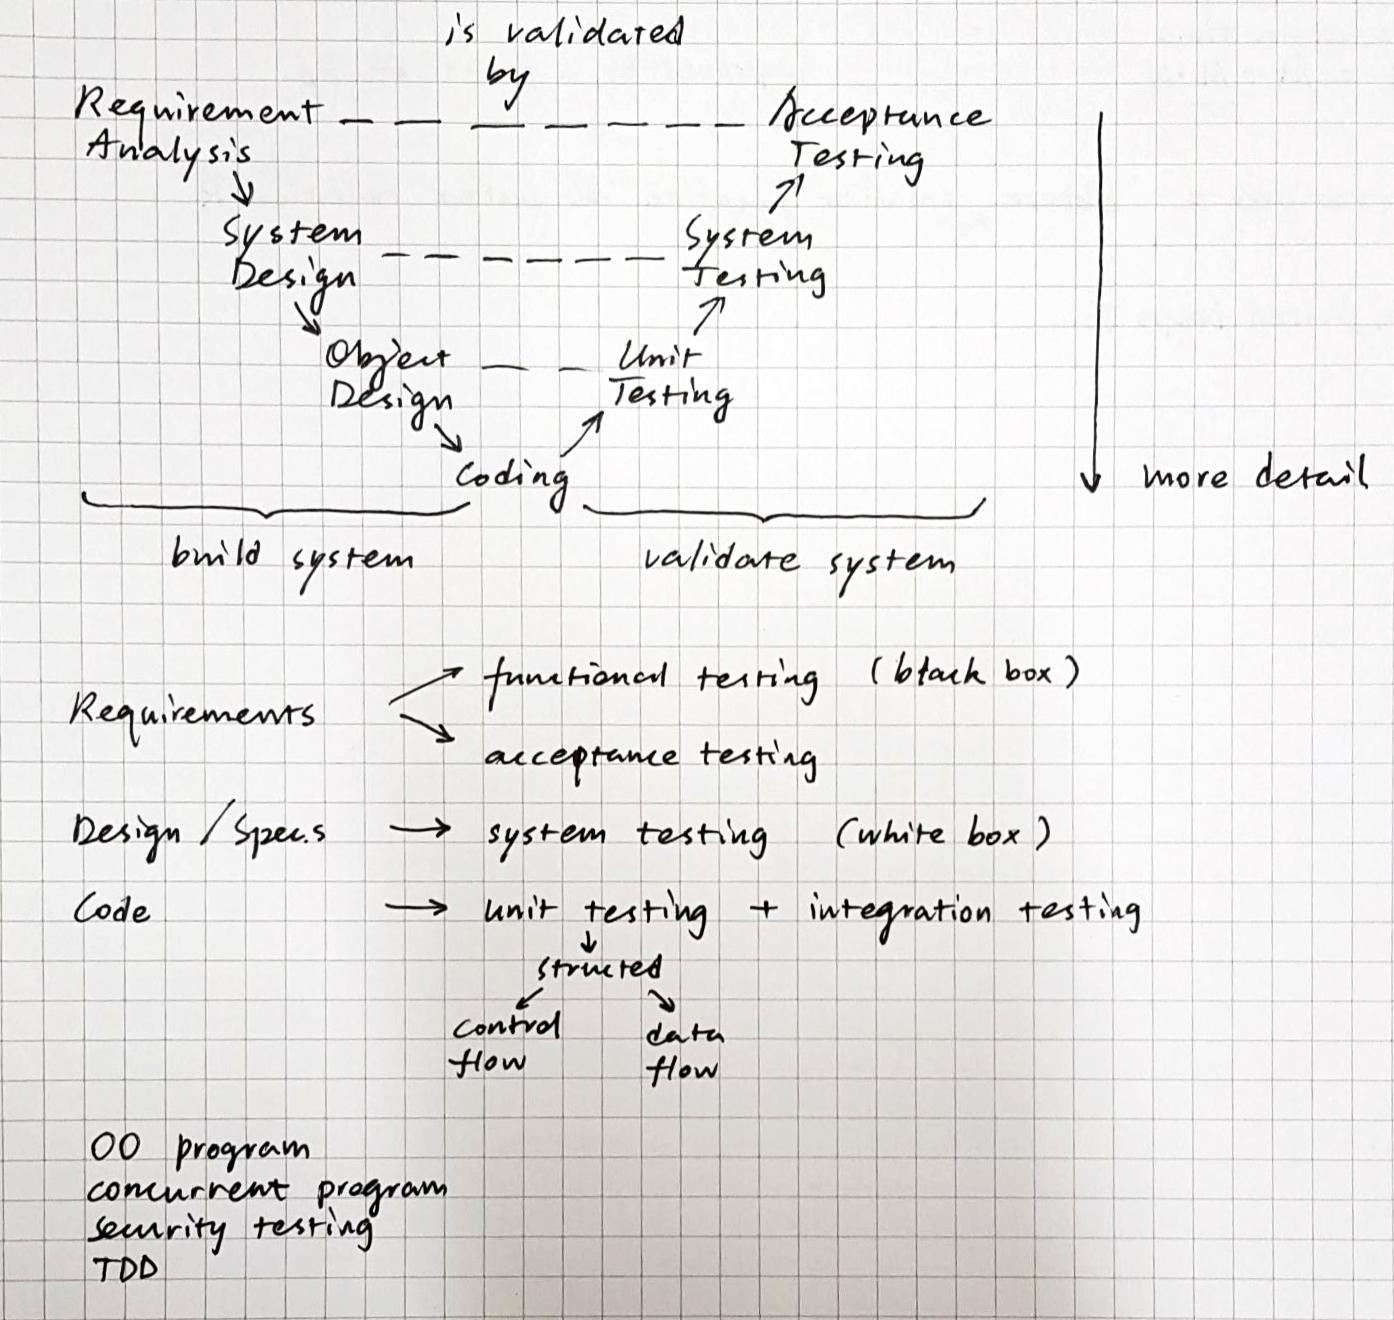 is validated
by
Requirement
Analysis
Acceptance
Testing
System
Design
System
Testing
Object
Design
Unit
Testing
Coding
more detail
build system
validate system
Requirements
functional testing (black box)
acceptance testing
Design / Spec.s → system testing (white box)
Code → unit testing + integration testing
structed
control
flow
data
flow
OO program
concurrent program
security testing
TDD